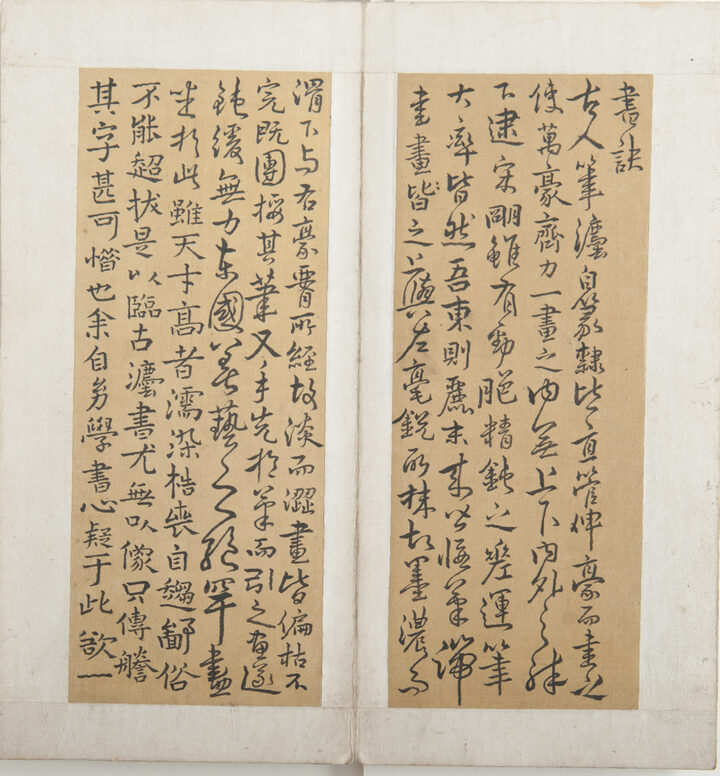 書訣
古人筆灋自篆隸皆直管伸豪而書之
使萬豪齊力一畫之內無上下內外之殊
下逮宋明雖有勁脆精鈍之差運筆
大率皆然吾東則麗末來皆偃筆端
書畫皆之上與左毫銳所抹故墨濃而
滑下与右豪所經故淡而澀畫皆偏枯不
完既團其筆又手先於筆而引之畫遂
鈍緩無力東國藝之絶罕盡
坐於此雖天才高者濡染梏喪自趨鄙俗
不能超拔是以臨古灋書尤無以像只傳謄
其字甚可惜也余自弱學書心疑于此欲一